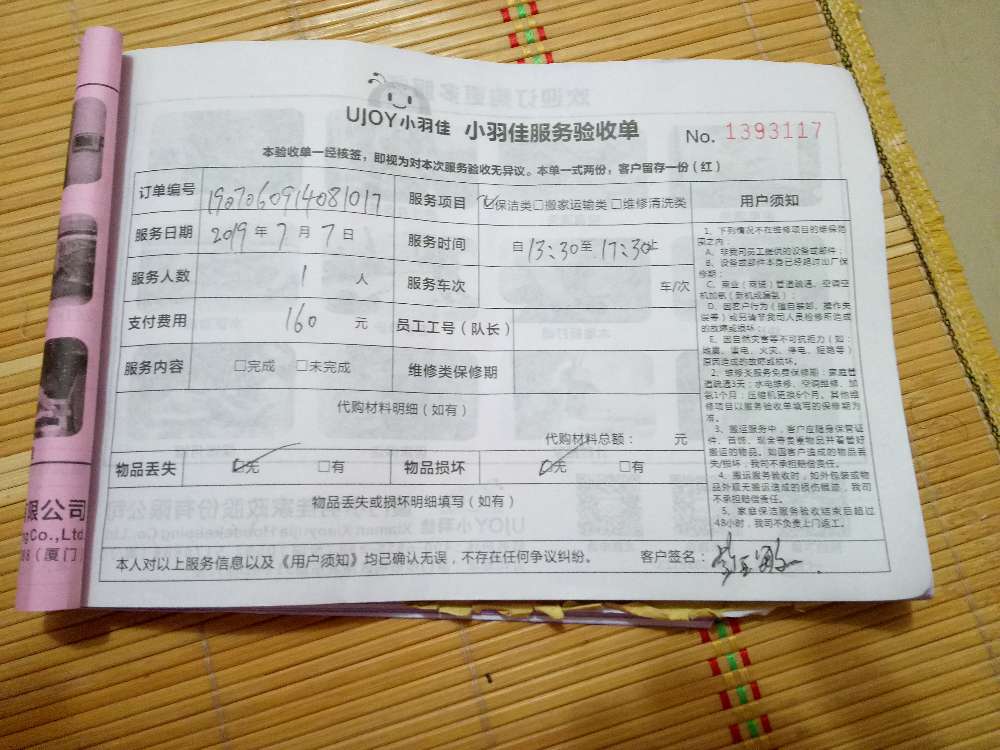 UJOY小羽佳 小羽佳服务验收单 No. 1393117
本验收单一经核签，即视为对本次服务验收无异议。本单一式两份，客户留存一份（红）
订单编号 1907060914081017 服务项目 ☑保洁类□搬家运输类 □维修清洗类 用户须知
服务日期 2019 年 7 月 7 日 服务时间 自 13:30 至 17:30 止
服务人数 1 人 服务车次 车/次
支付费用 160 元 员工工号（队长）
服务内容 □完成 □未完成 维修类保修期
代购材料明细（如有）
代购材料总额： 元
物品丢失 ☑无 □有 物品损坏 ☑无 □有
物品丢失或损坏明细填写（如有）
本人对以上服务信息以及《用户须知》均已确认无误，不存在任何争议纠纷。 客户签名：
1、下列情况不在维修项目的维保范
围之内：
A、非我司员工提供的设备或部件；
B、设备或部件本身已经超过出厂保
修期；
C、商业（商铺）管道疏通、空调空
机加氨（新机或漏氨）；
D、因客户行为（擅自装卸、操作失
误等）或另请非我司人员检修所造成
的故障或损坏；
E、因自然灾害等不可抗拒力（如：
地震、雷电、火灾、停电、短路等）
原因造成的故障或损坏。
2、维修类服务免费保修期：家庭管
道疏通3天；水电维修、空调维修、加
氨1个月；压缩机更换6个月。其他维
修项目以服务验收单填写的保修期为
准。
3、搬运服务中，客户应随身保管证
件、首饰、现金等贵重物品并看管好
搬运的物品。如因客户造成的物品丢
失/损坏，我司不承担赔偿责任。
4、搬运服务验收时，如外包装或物
品外观无搬运造成的损伤痕迹，我司
不承担赔偿责任。
5、家庭保洁服务验收结束后超过
48小时，我司不负责上门返工。
限公司
g Co.,Ltd
（厦门）